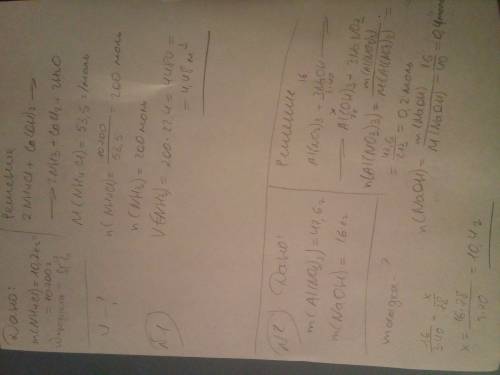 Дано:
m(NH4Cl)=10,7кг
=10700г
V-?
Решение
2NH4Cl+Ca(OH)2→
→2NH3+CaCl2+2H2O
M(NH4Cl)=53,5 г/моль
n(NH4Cl)=10700/53,5=200 моль
n(NH3)=200 моль
V(NH3)=200·22,4=4480=
=4,48 м³
№1
№2
Дано:
m(Al(NO3)3)=42,6г
m(NaOH)=16г
m осадка-?
16/3·40=x/78
x=16·78/3·40=10,4г
Решение
Al(NO3)3+3NaOH→
→Al(OH)3+3NaNO3
n(Al(NO3)3)=m(Al(NO3)3)/M(Al(NO3)3)=
=42,6/213=0,2 моль
n(NaOH)=m(NaOH)/M(NaOH)=16/40=0,4 моль